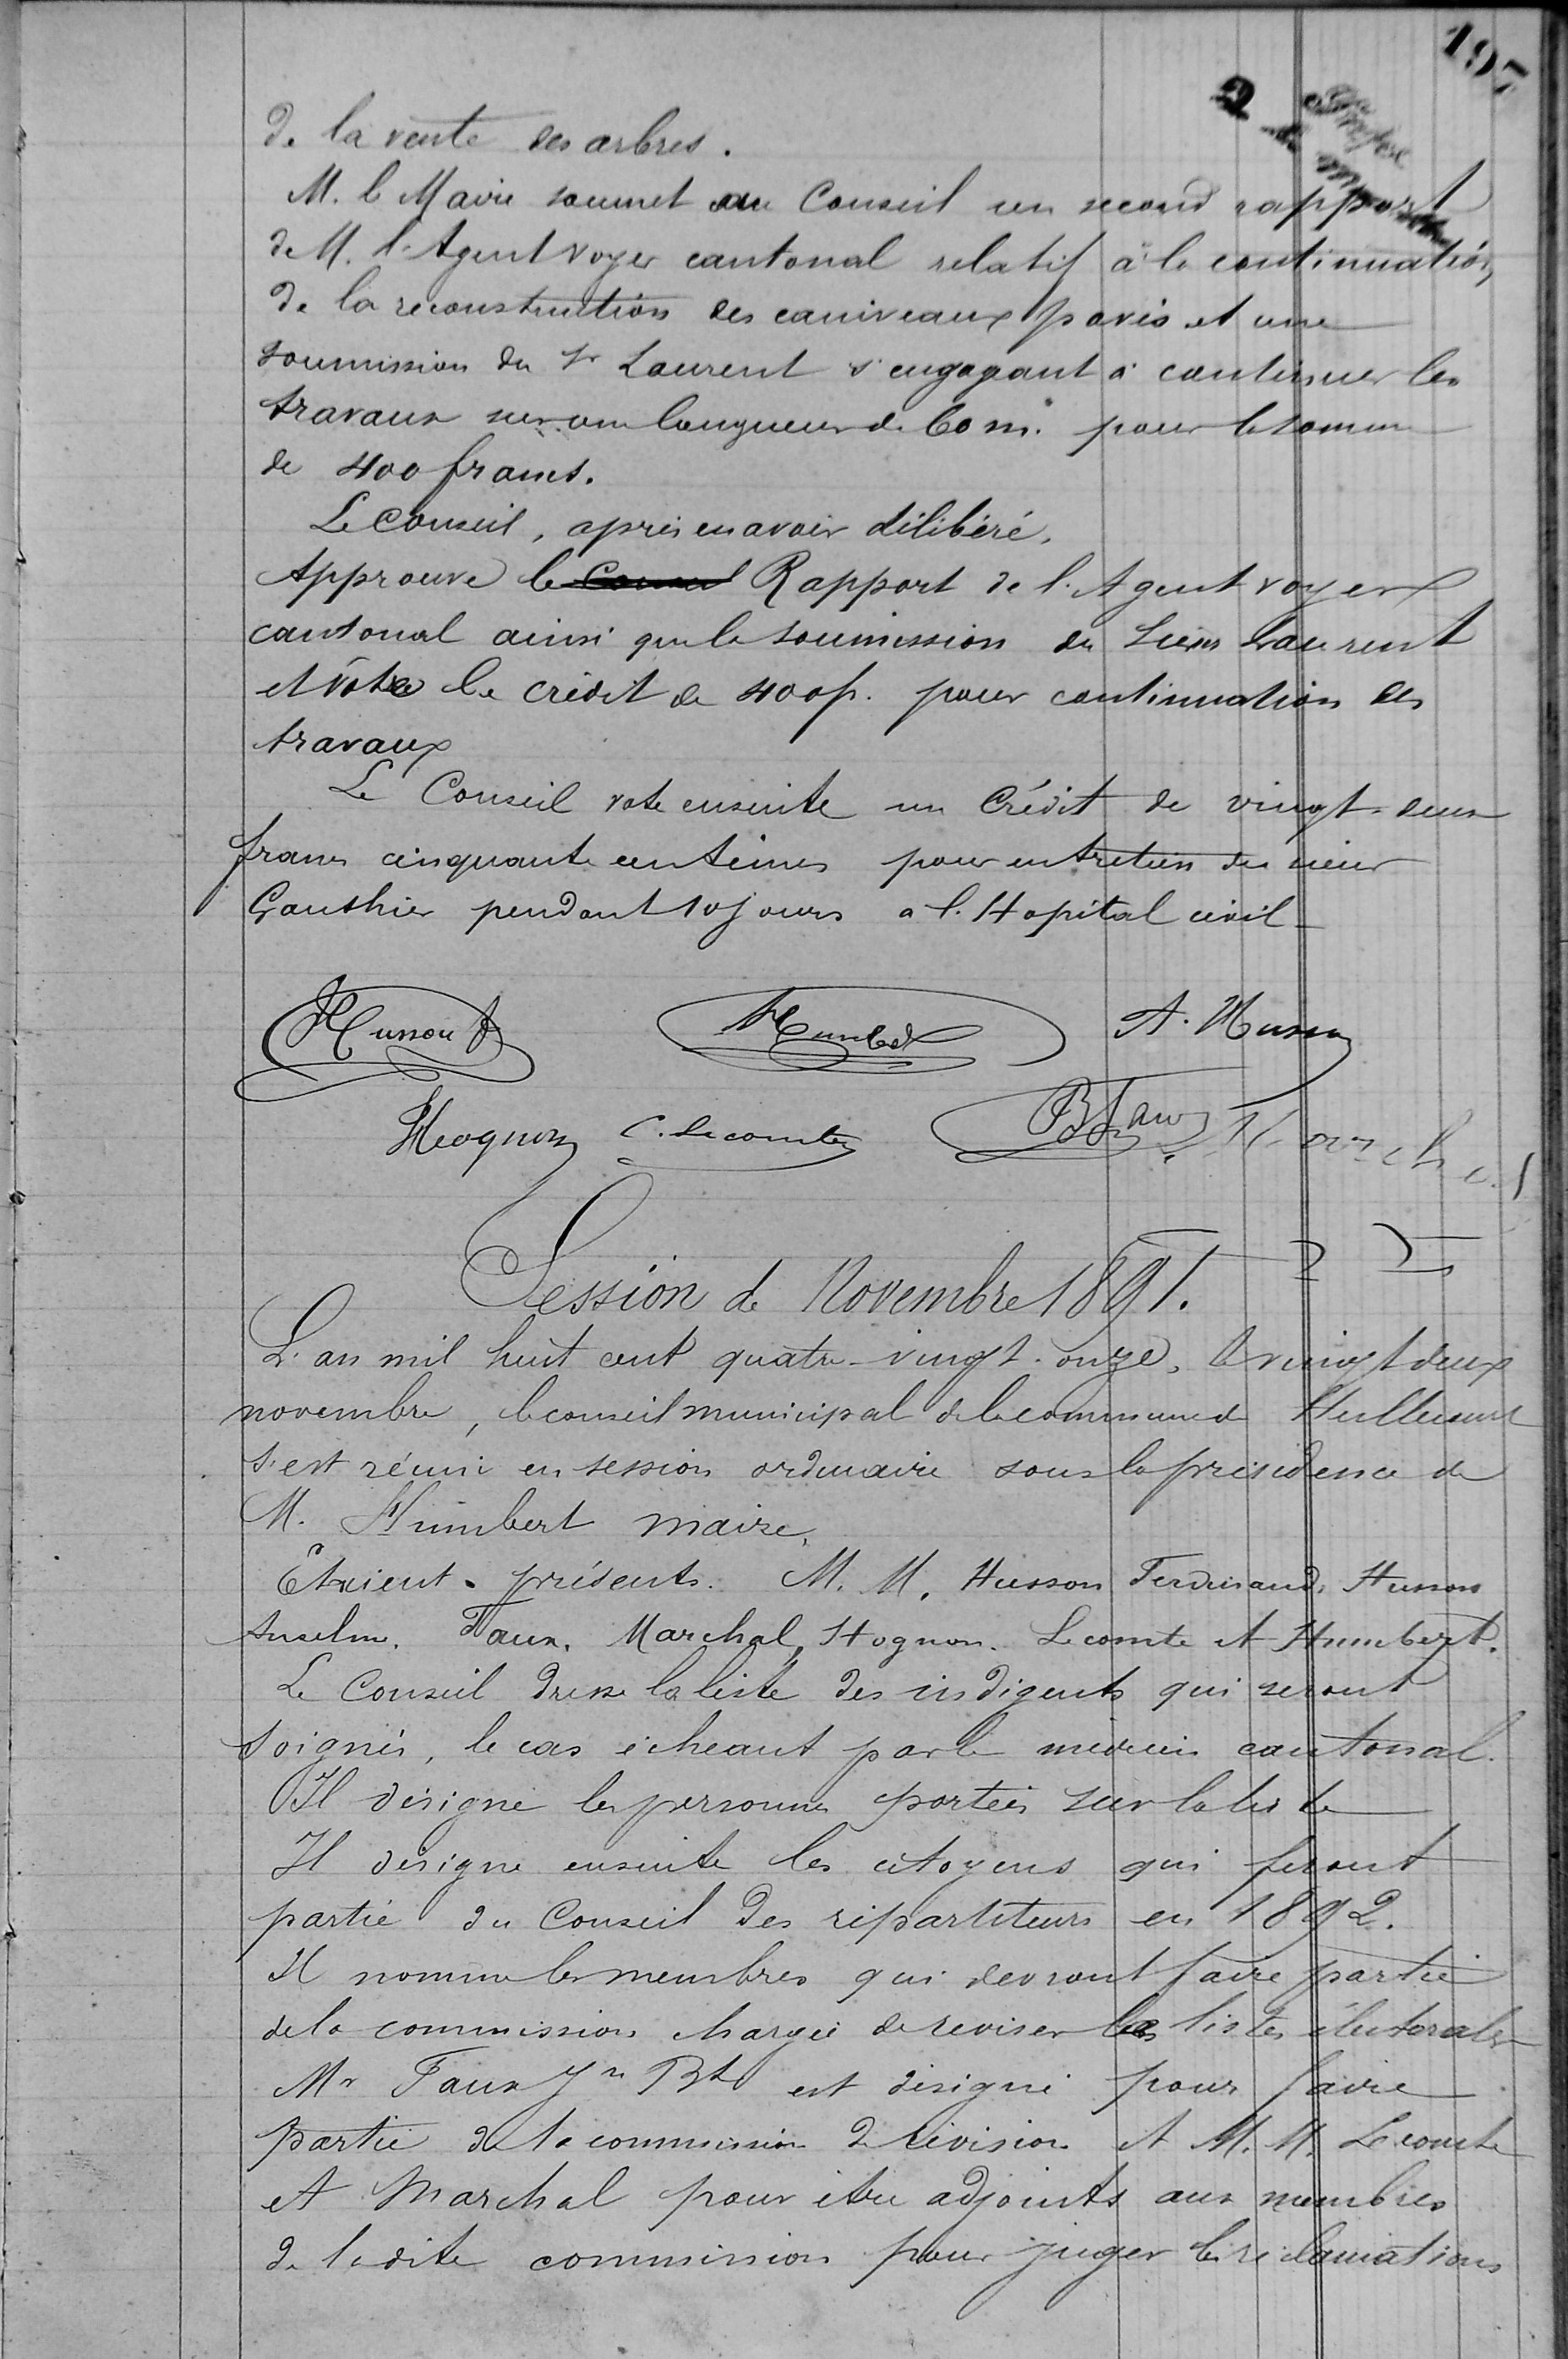 197
2
de la vente des arbres.
M. le Maire soumet au Conseil un second rapport
de M. l'Agent Voyer cantonal relatif à la continuation
de la reconstruction des caniveaux pavés et une
soumission du Sr Laurent s'engageant à continuer les
travaux sur une longueur de 60 m. pour la somme
de 400 francs.
Le Conseil, après en avoir délibéré,
Approuve le Rapport de l'Agent voyer
cantonal ainsi que la soumission du Sieur Laurent
et vote le crédit de 400 f. pour continuation des
travaux
Le Conseil vote ensuite un Crédit de vingt-deux
francs cinquante centimes pour entretien du sieur
Gauthier pendant 10 jours a l'Hopital civil
Husson F Humbert A. Husson
Hognon C. Lecomte Bt Faux Marchal
Session de Novembre 1891.
L'an mil huit cent quatre-vingt-onze, le vingt deux
novembre, le conseil municipal de la commune de
s'est réuni en session ordinaire sous la présidence de
M. Humbert maire.
Etaient présents. M. M. Husson Ferdinand, Husson
Anselme, Faux, Marchal, Hognon. Lecomte et Humbert.
Le Conseil dresse la liste des indigents qui seront
soignés, le cas échéant par le médecin cantonal.
Il désigne les personnes portées sur la liste
Il désigne ensuite les citoyens qui feront
partie du Conseil des répartiteurs en 1892.
Il nomme les membres qui devront faire partie
de la commission chargée de reviser les listes électorales
Mr Faux Jn Bte est désigné pour faire
partie de la commission de révision et M. M. Lecomte
et Marchal pour être adjoints aux membres
de la dite commission pour juger les réclamations